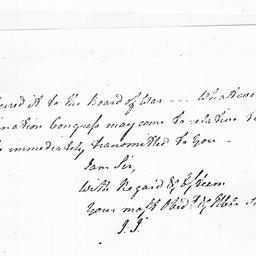 ferred it to the Board of War --- Whatever
mination Congress may come to relative
immediately transmitted to You -
I am Sir,
With Regard & Esteem
Your most Obed.t &
J. J.